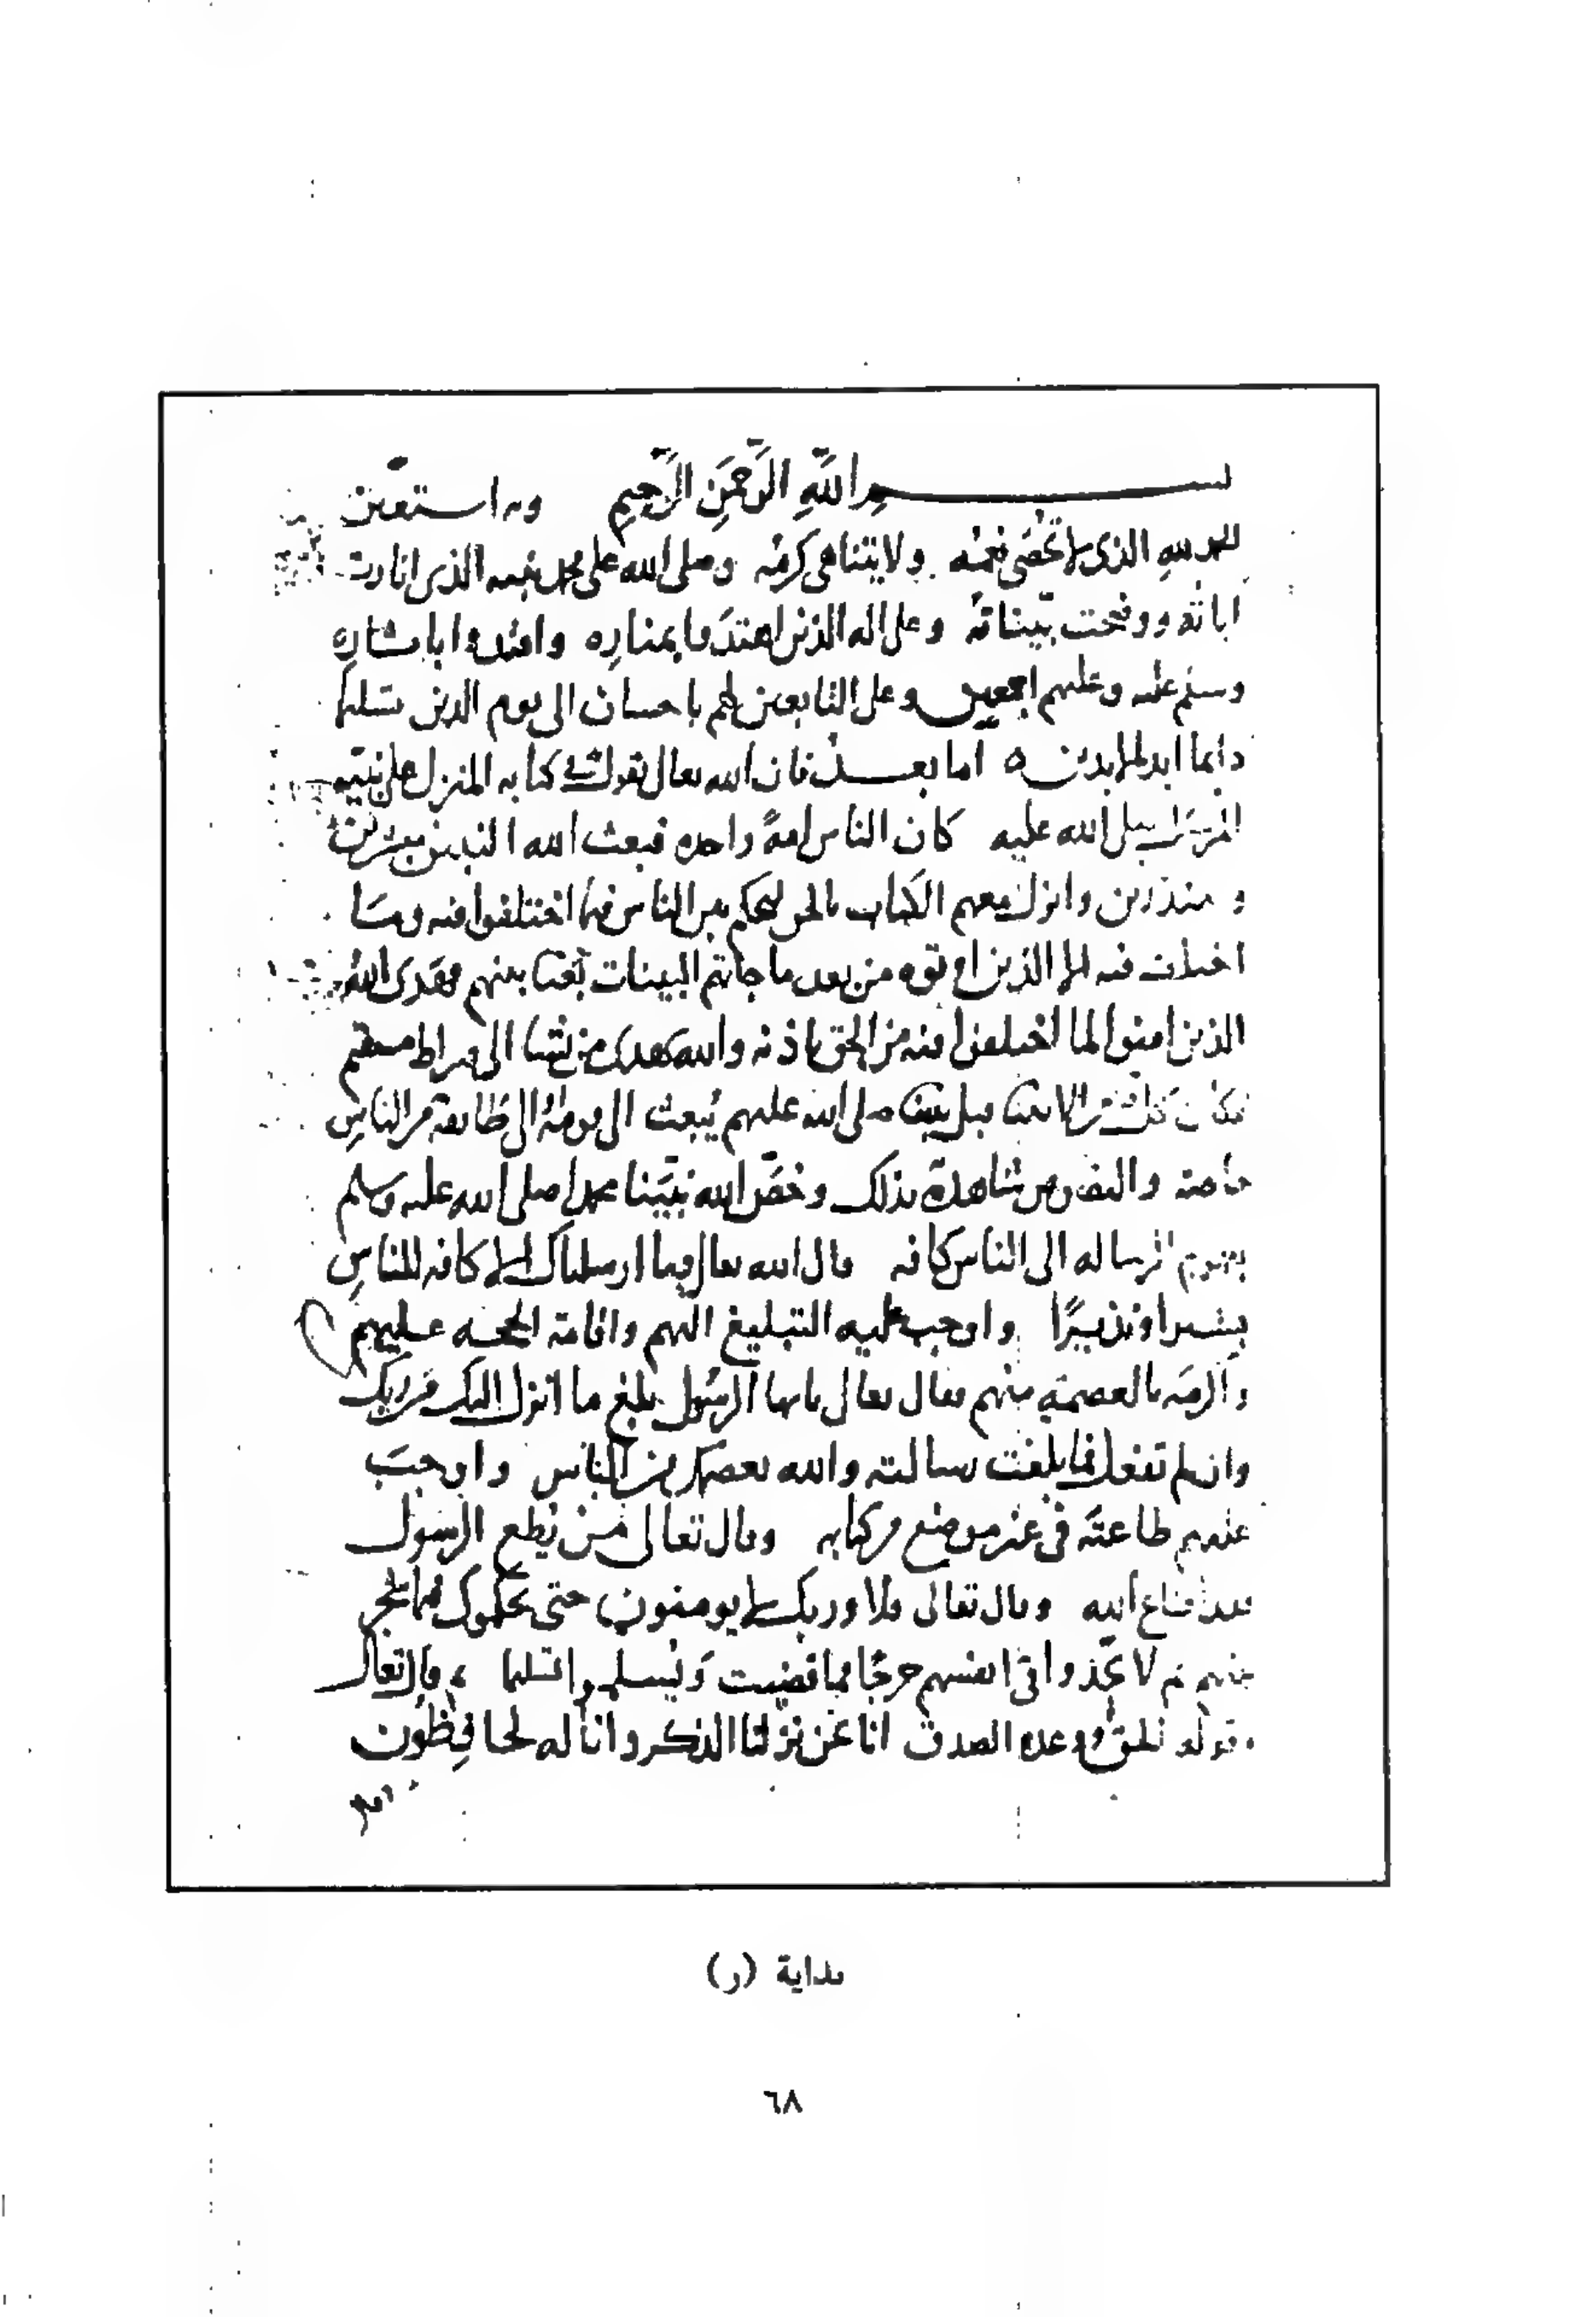 بسم اللَّهِ الرَّحمَنِ الرَّحيمِ وبه استعين
الحمد للهِ الذي لا تُحصَى نعمُه ولا يتناهى كرمُه وصلى الله على محمد نبيه الذي انارت
اياتُه ووضحت بيّناتُه وعلى اله الذين اهتدَوا بمنارِه واقتدوا باثارِه
وسلم عليه وعليهم اجمعين وعلى التابعين لهم باحسان الى يوم الدين تسليما
دايما ابد الابدين ه اما بعد فان الله تعالى يقول في كتابه المنزل على نبيه
المرسل صلى الله عليه كان الناس امةً واحده فبعث الله النبيين مبشرين
و منذرين وانزل معهم الكتاب بالحق ليحكم بين الناس فيما اختلفوا فيه وما
اختلف فيه الا الذين اوتوه من بعد ما جاتهم البينات بغيا بينهم فهدى اللهُ
الذين امنوا لما اختلفوا فيه من الحق باذنه والله يهدي من يشا الى صراط مستقيم
فكان كل من الانبيا قبل نبينا صلى الله عليهم يُبعث الى قومه او الى طايفة من الناسِ
خاصة والنصوص شاهدة بذلك وخصّ الله نبيّنا محمدا صلى الله عليه وسلم
بعموم الرساله الى الناس كافه قال الله تعالى وما ارسلناك الا كافه للناسِ
بشيرا ونذيرًا واوجب عليه التبليغ اليهم واقامة الحجه عليهم
والعصمة منهم فقال تعالى يايها الرسُول بلغ ما انزل اليك من ربك
وان لم تفعل فما بلغت رسالته والله يعصمك من الناس واوجبَ
عليهم طاعتَه في غير موضع من كتابه وقال تعالى من يُطع الرسول
فقد اطاع الله وقال تعالى فلا وربك لا يومنون حتى يحكموك فيما شجر
بينهم ثم لا يجدوا في انفسهم حرجًا مما قضيت وَيُسلموا تسليما وقال تعالى
وقوله الحق ووعده الصدق انا نحن نزلنا الذكر وانا له لحافِظُون
بداية (ر)
٦٨